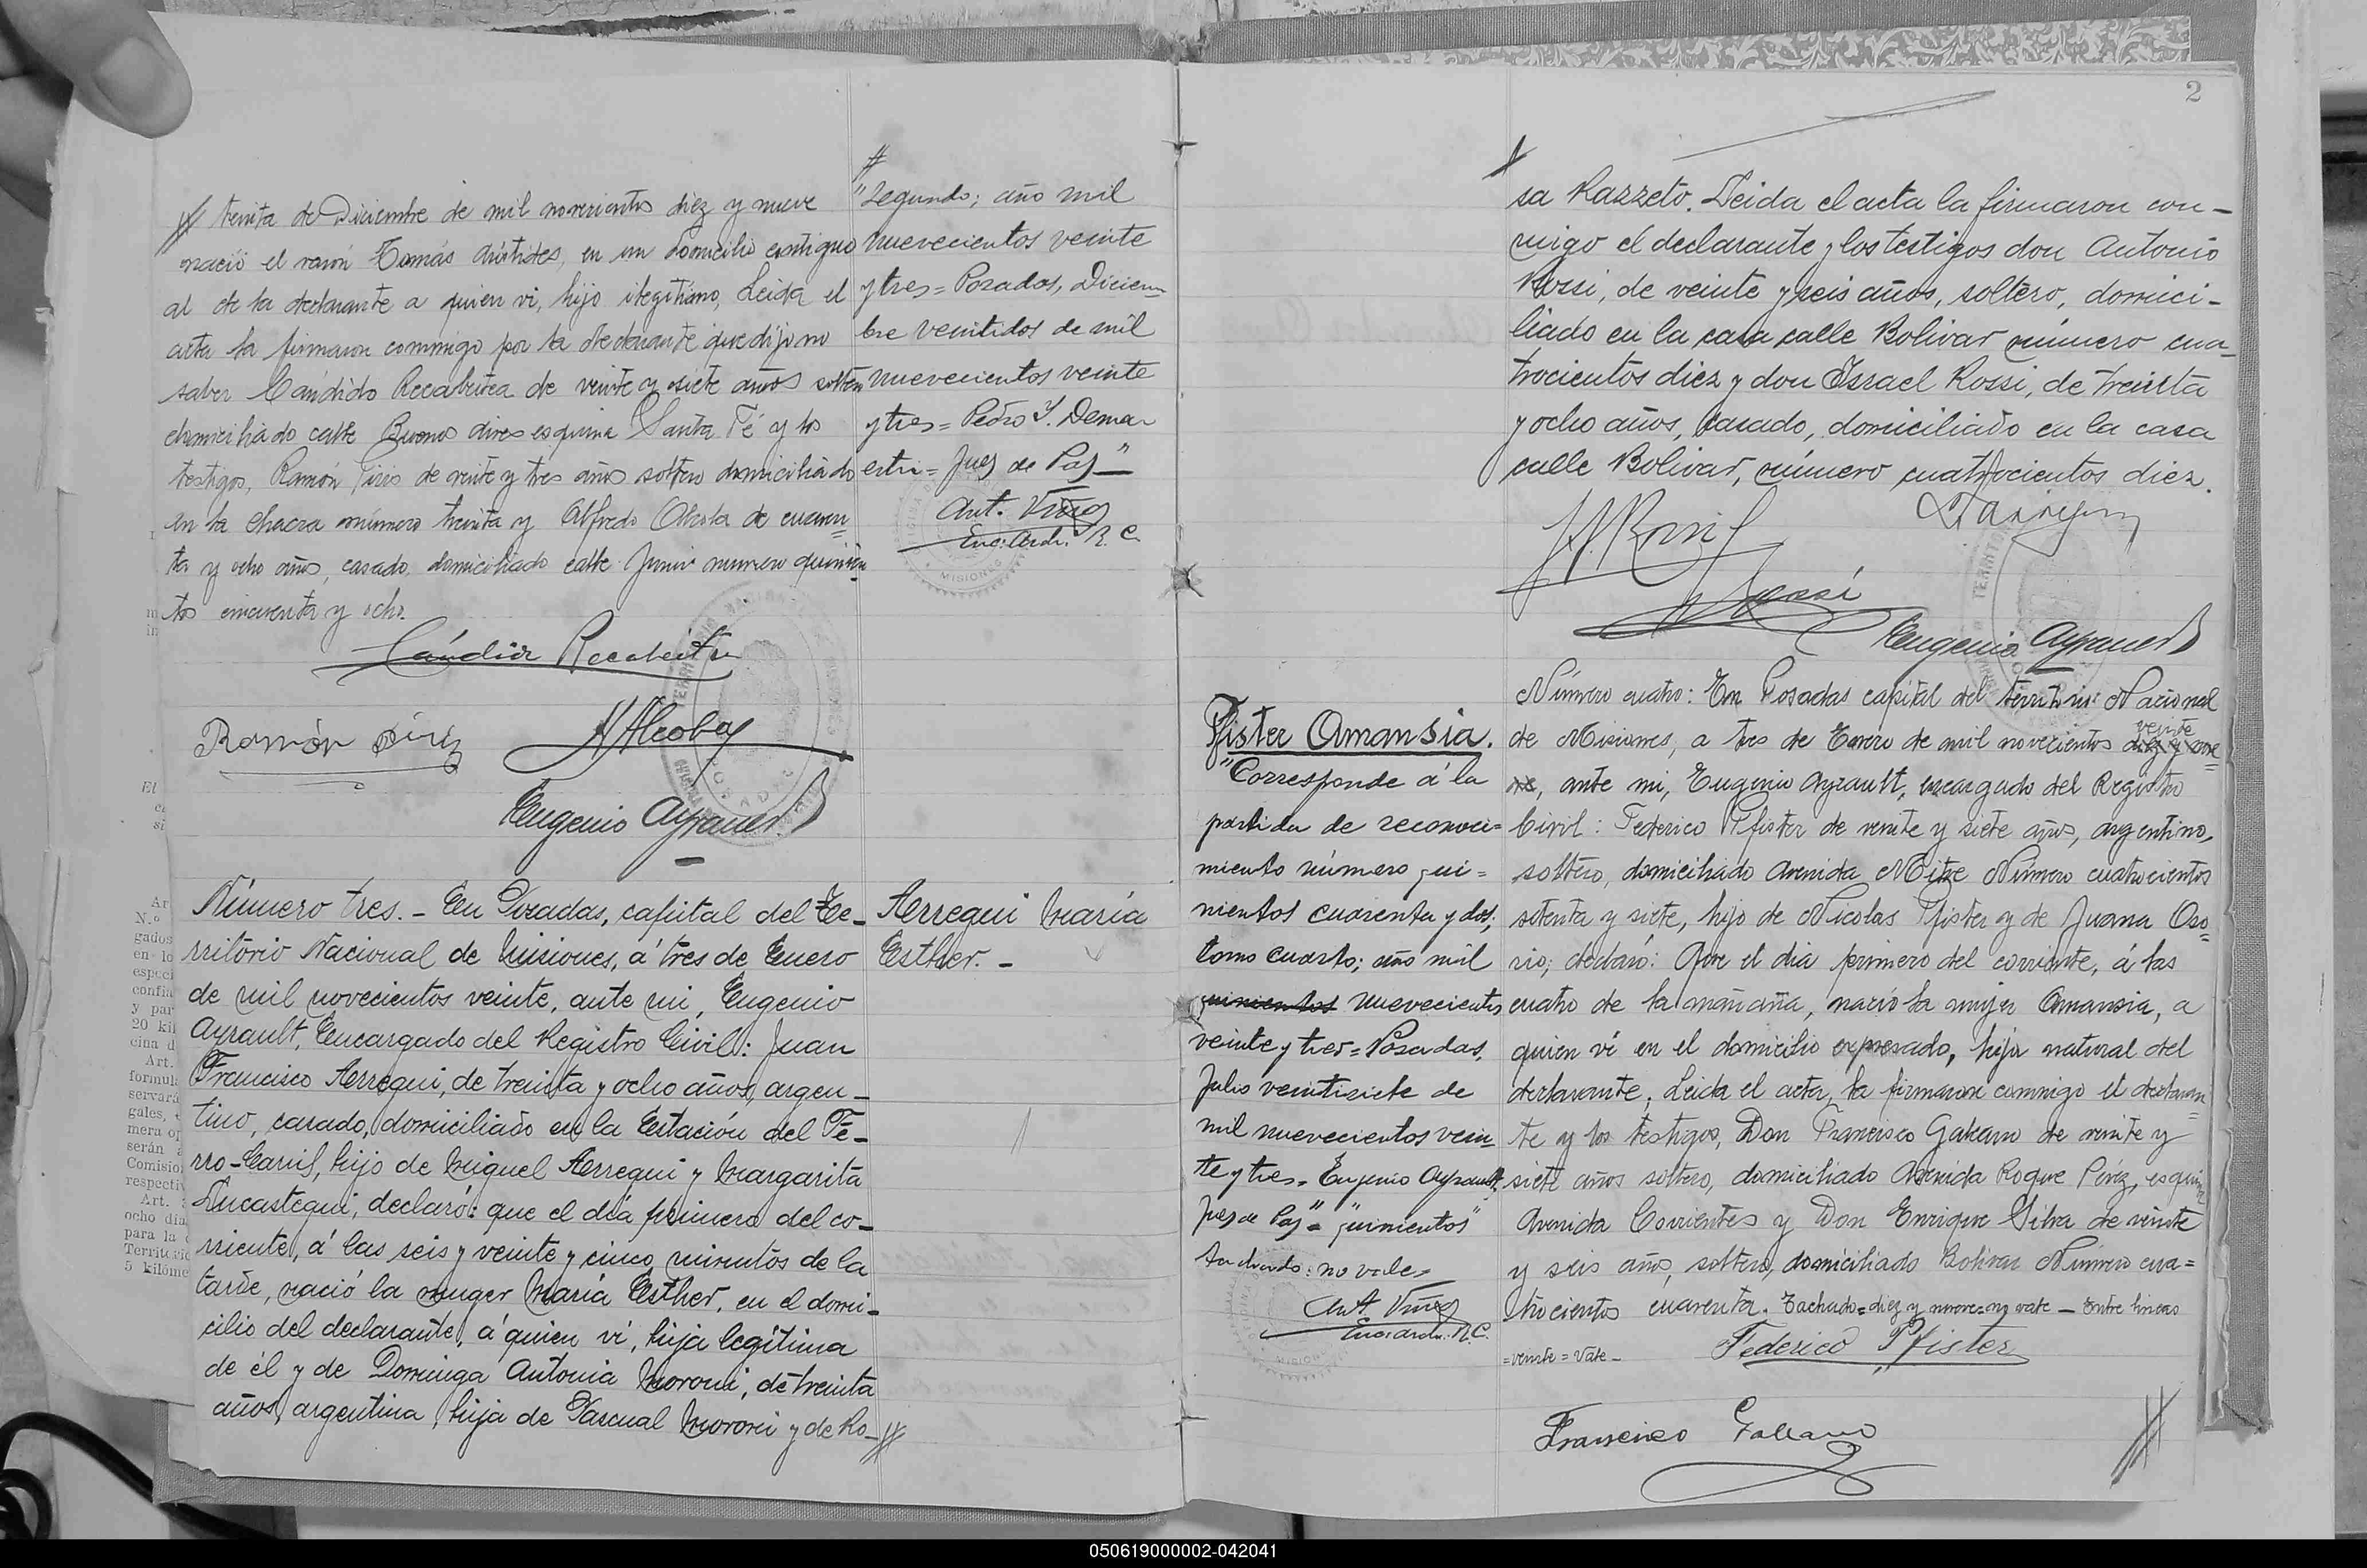 // treinta de Diciembre de mil novecientos diez y nueve
nació el varón Tomás Arístides, en un domicilio contiguo
al de la declarante a quien vi, hijo ilegítimo, Leida el
acta la firmaron conmigo por la declarante que dijo no
saber Cándido Recabitea de veinte y siete años soltero
domiciliado calle Buenos Aires esquina Santa Fé y los
testigos, Ramón de veinte y tres años soltero domiciliado
en la chacra número treinta y Alfredo de cuaren=
ta y ocho años, casado, domiciliado calle Junin numero quinien
tos cincuenta y ocho.
Cándido
Ramón
Eugenio Ayrault
Número tres. - En Posadas, capital del Te-
rritorio Nacional de Misiones, á tres de Enero
de mil novecientos veinte, ante mi, Eugenio
Ayrault, Encargado del Registro Civil: Juan
Francisco Aerregui, de treinta y ocho años, argen-
tino, casado, domiciliado en la Estación del Fe-
rro-Carril, hijo de Miguel Aerregui y Margarita
declaró: que el día primero del co-
rriente, á las seis y veinte y cinco minutos de la
tarde, nació la muger María Esther, en el domi-
cilio del declarante, á quien vi, hija legítima
de él y de Dominga Antonia Moroni, de treinta
años, argentina, hija de Pascual Moroni y de Ro-//
//
"Segundo; año mil
nuevecientos veinte
y tres = Posadas, Diciem=
bre veintidos de mil
nuevecientos veinte
y tres = Pedro Y. Demar
= Juez de Paz"
Ant.
Enc. Arch. R. C.
MISIONES
Aerregui María
Esther. -
2
sa Razzeto. Leida el acta la firmaron con-
migo el declarante y los testigos don Antonio
Rossi, de veinte y seis años, soltero, domici-
liado en la casa calle Bolivar número cua-
trocientos diez y don Israel Rossi, de treinta
y ocho años, casado, domiciliado en la casa
calle Bolivar, número cuatrocientos diez.
Eugenio Ayrault
Pfister Amansia.
"Corresponde á la
partida de reconoci=
miento número qui=
nientos cuarenta y dos;
tomo cuarto; año mil
quinientos nuevecientos
veinte y tres = Posadas,
Julio veintisiete de
mil nuevecientos vein
te y tres = Eugenio Ayrault,
Juez de Paz" = "quinientos"
tachado: no vale =
Ant.
Enc. Arch. R.C.
Número cuatro: En Posadas capital del territorio Nacional
veinte
de Misiones, a tres de Enero de mil novecientos diez y nue=
ve, ante mi, Eugenio Ayrault, encargado del Registro
Civil: Federico Pfister de veinte y siete años, argentino,
soltero, domiciliado Avenida Mitre Número cuatrocientos
setenta y siete, hijo de Nicolas Pfister y de Juana Oso=
rio; declaró: Que el dia primero del corriente, á las
cuatro de la mañana, nació la mujer Amansia, a
quien vi en el domicilio expresado, hija natural del
declarante; Leida el acta, la firmaron conmigo el declaran=
te y los testigos, Don Francisco Galeano de veinte y
siete años soltero, domiciliado Avenida Roque Pérez, esquina
Avenida Corrientes y Don Enrique Silva de veinte
y seis años, soltero, domiciliado Bolivar Número cua=
trocientos cuarenta. Tachado=diez y nueve=no vale - Entre lineas
=veinte=Vale-
Federico Pfister
Francisco Galeano
//
050619000002-042041